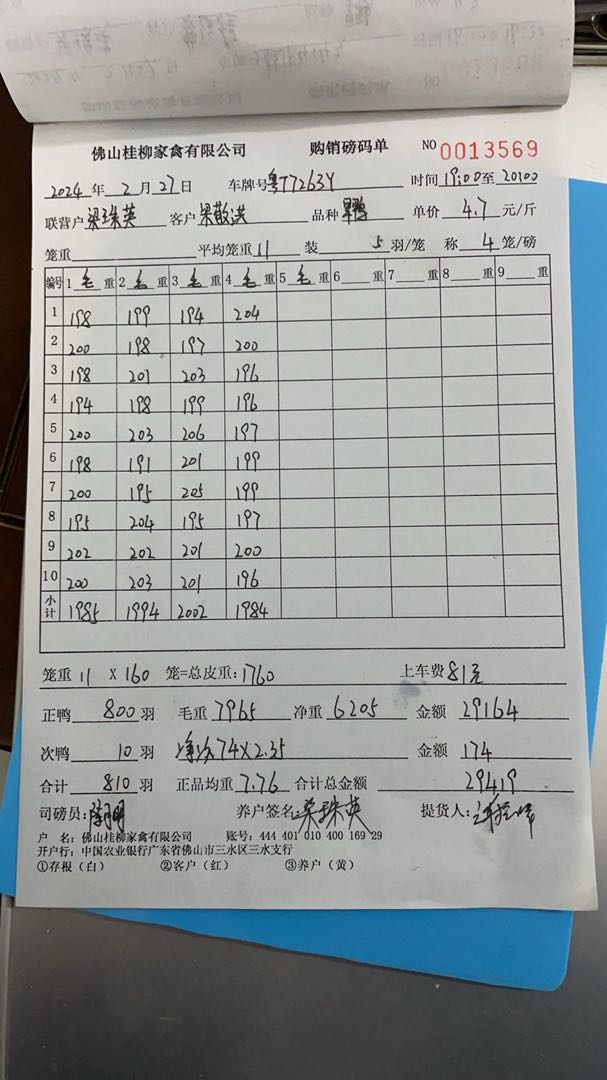 佛山桂柳家禽有限公司 购销磅码单 NO 0013569
2024 年 2 月 27 日 车牌号 粤T7263Y 时间 19:00 至 20:00
联营户 梁珠英 客户 梁敬洪 品种 单价 4.7 元/斤
笼重 平均笼重 11 装 5 羽/笼 称 4 笼/磅
编号 1 毛 重 2 毛 重 3 毛 重 4 毛 重 5 毛 重 6 重 7 重 8 重 9 重
1 198 199 194 204
2 200 198 197 200
3 198 201 203 196
4 194 198 199 196
5 200 203 206 197
6 198 191 201 199
7 200 195 205 199
8 195 204 195 197
9 202 202 201 200
10 200 203 201 196
小计 1985 1994 2002 1984
笼重 11 X 160 笼=总皮重: 1760 上车费 81元
正鸭 800 羽 毛重 7965 净重 6205 金额 29164
次鸭 10 羽 净次74X2.35 金额 174
合计 810 羽 正品均重 7.76 合计总金额 29419
司磅员: 养户签名: 梁珠英 提货人:
户 名: 佛山桂柳家禽有限公司 账号: 444 401 010 400 169 29
开户行: 中国农业银行广东省佛山市三水区三水支行
①存根（白） ②客户（红） ③养户（黄）